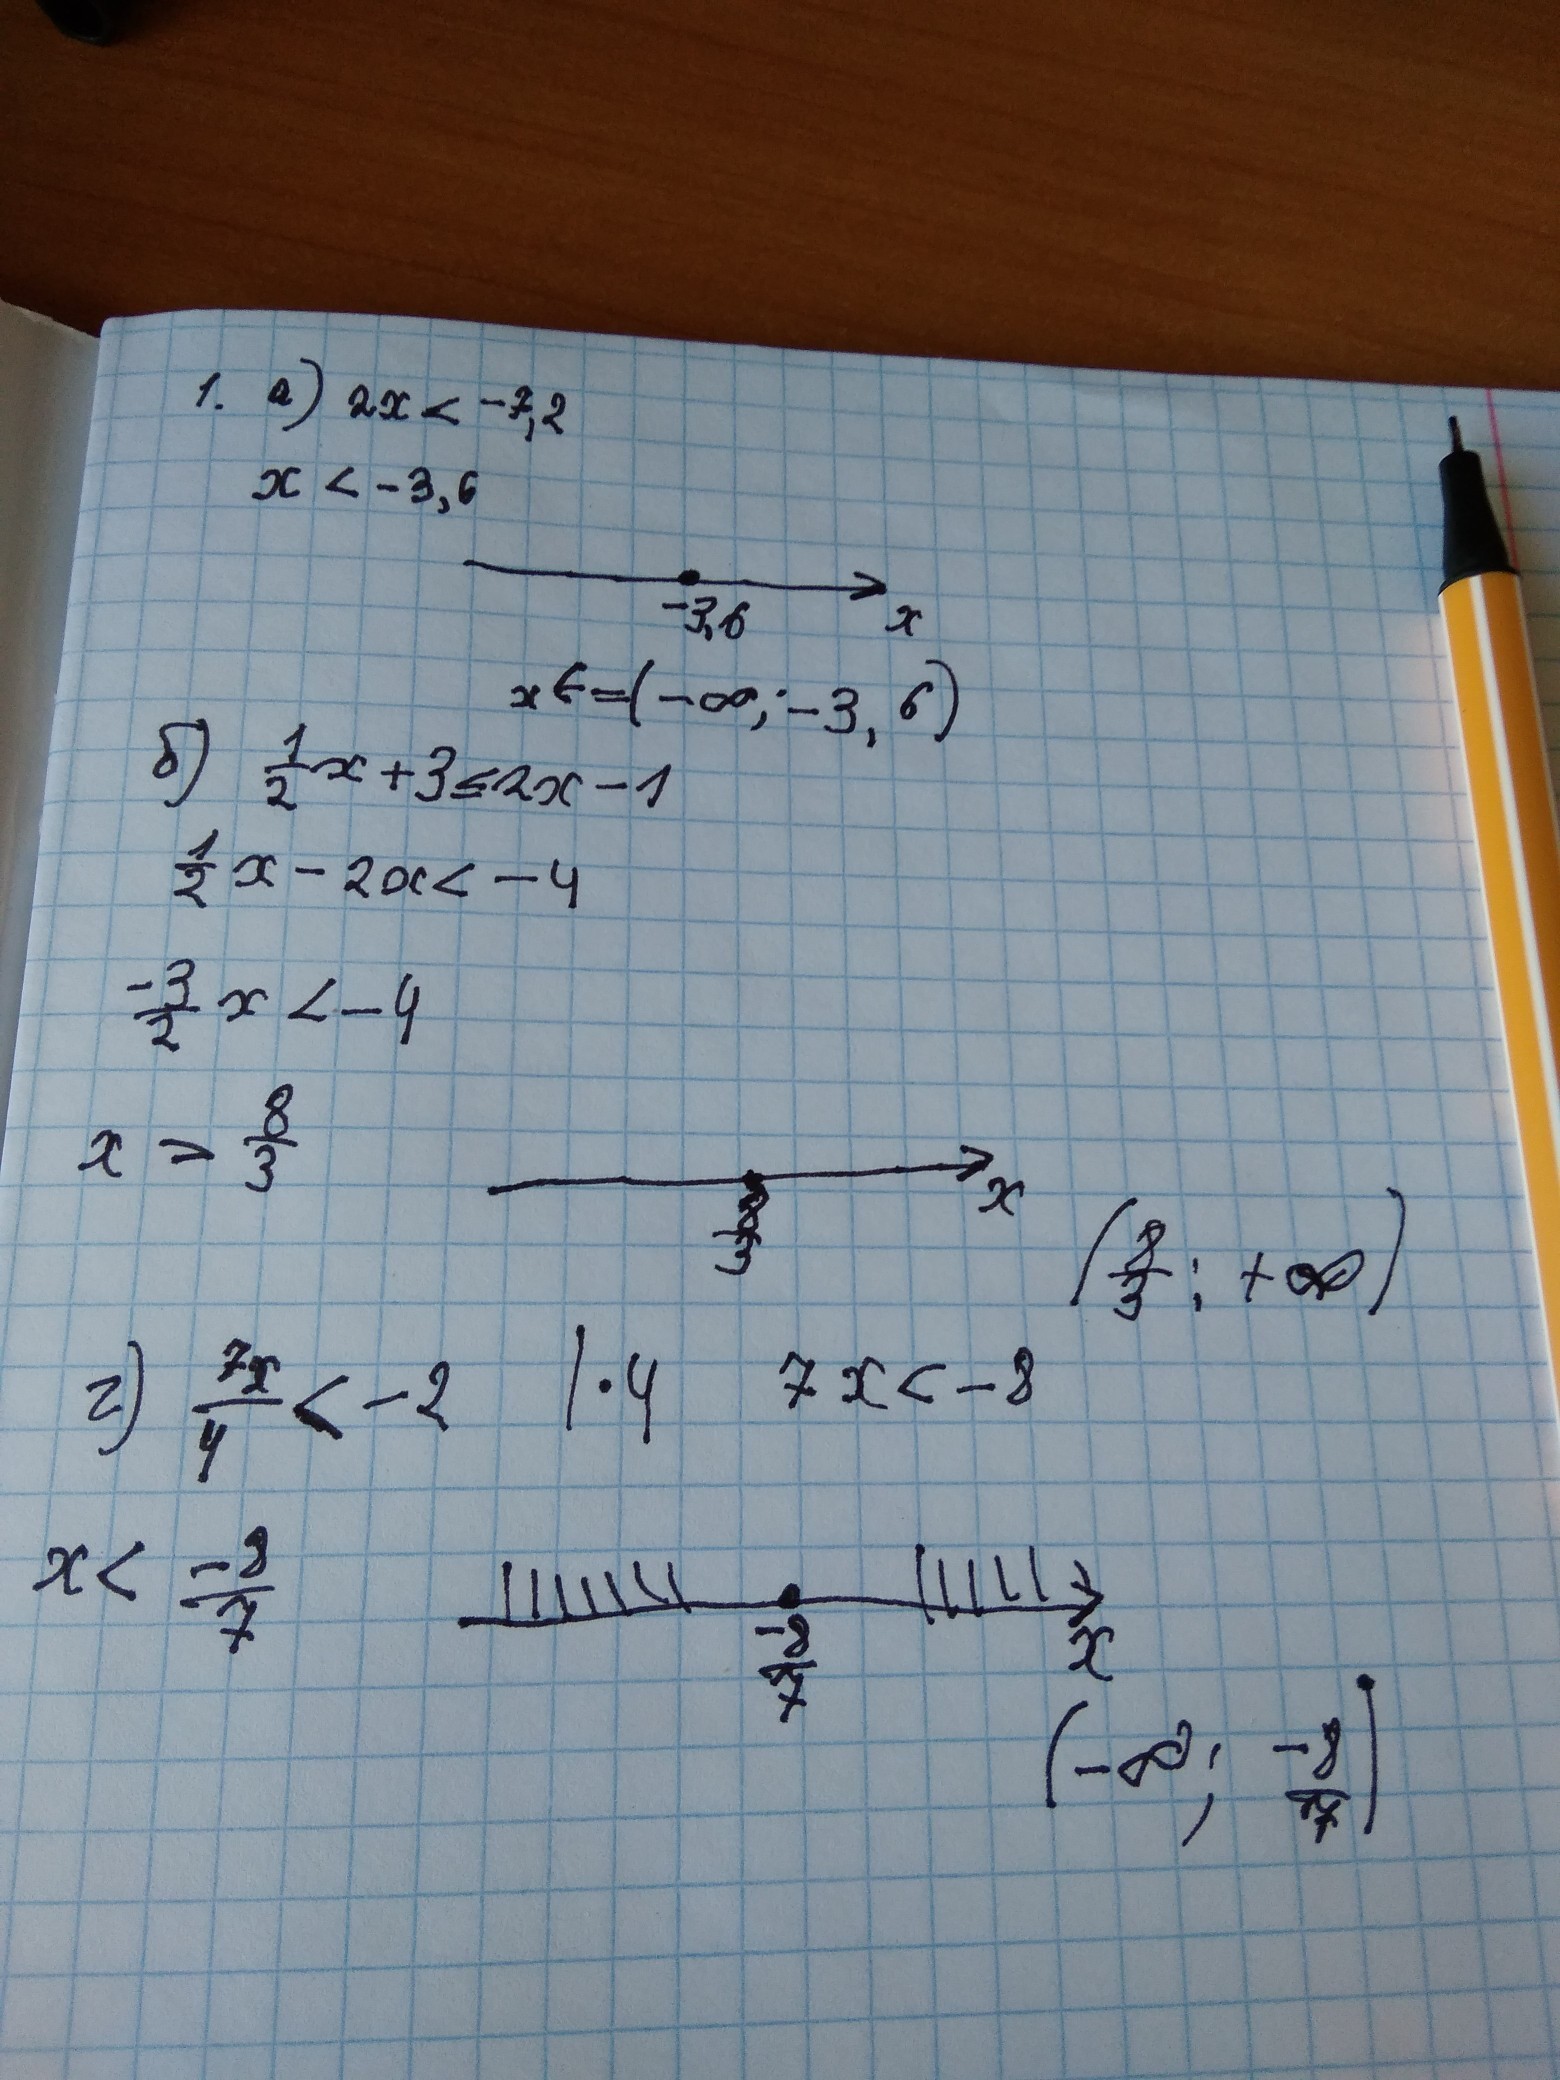 1. а) 2x < -7,2
x < -3,6
-3,6 x
x €=(-∞; -3, 6)
б) 1/2 x + 3 ≤ 2x - 1
1/2 x - 2x < -4
-3/2 x < -4
x > 8/3
8/3 x
(8/3; +∞)
г) 7x/4 < -2 | · 4 7x < -8
x < -8/7
-8/7 x
(-∞; -8/7)